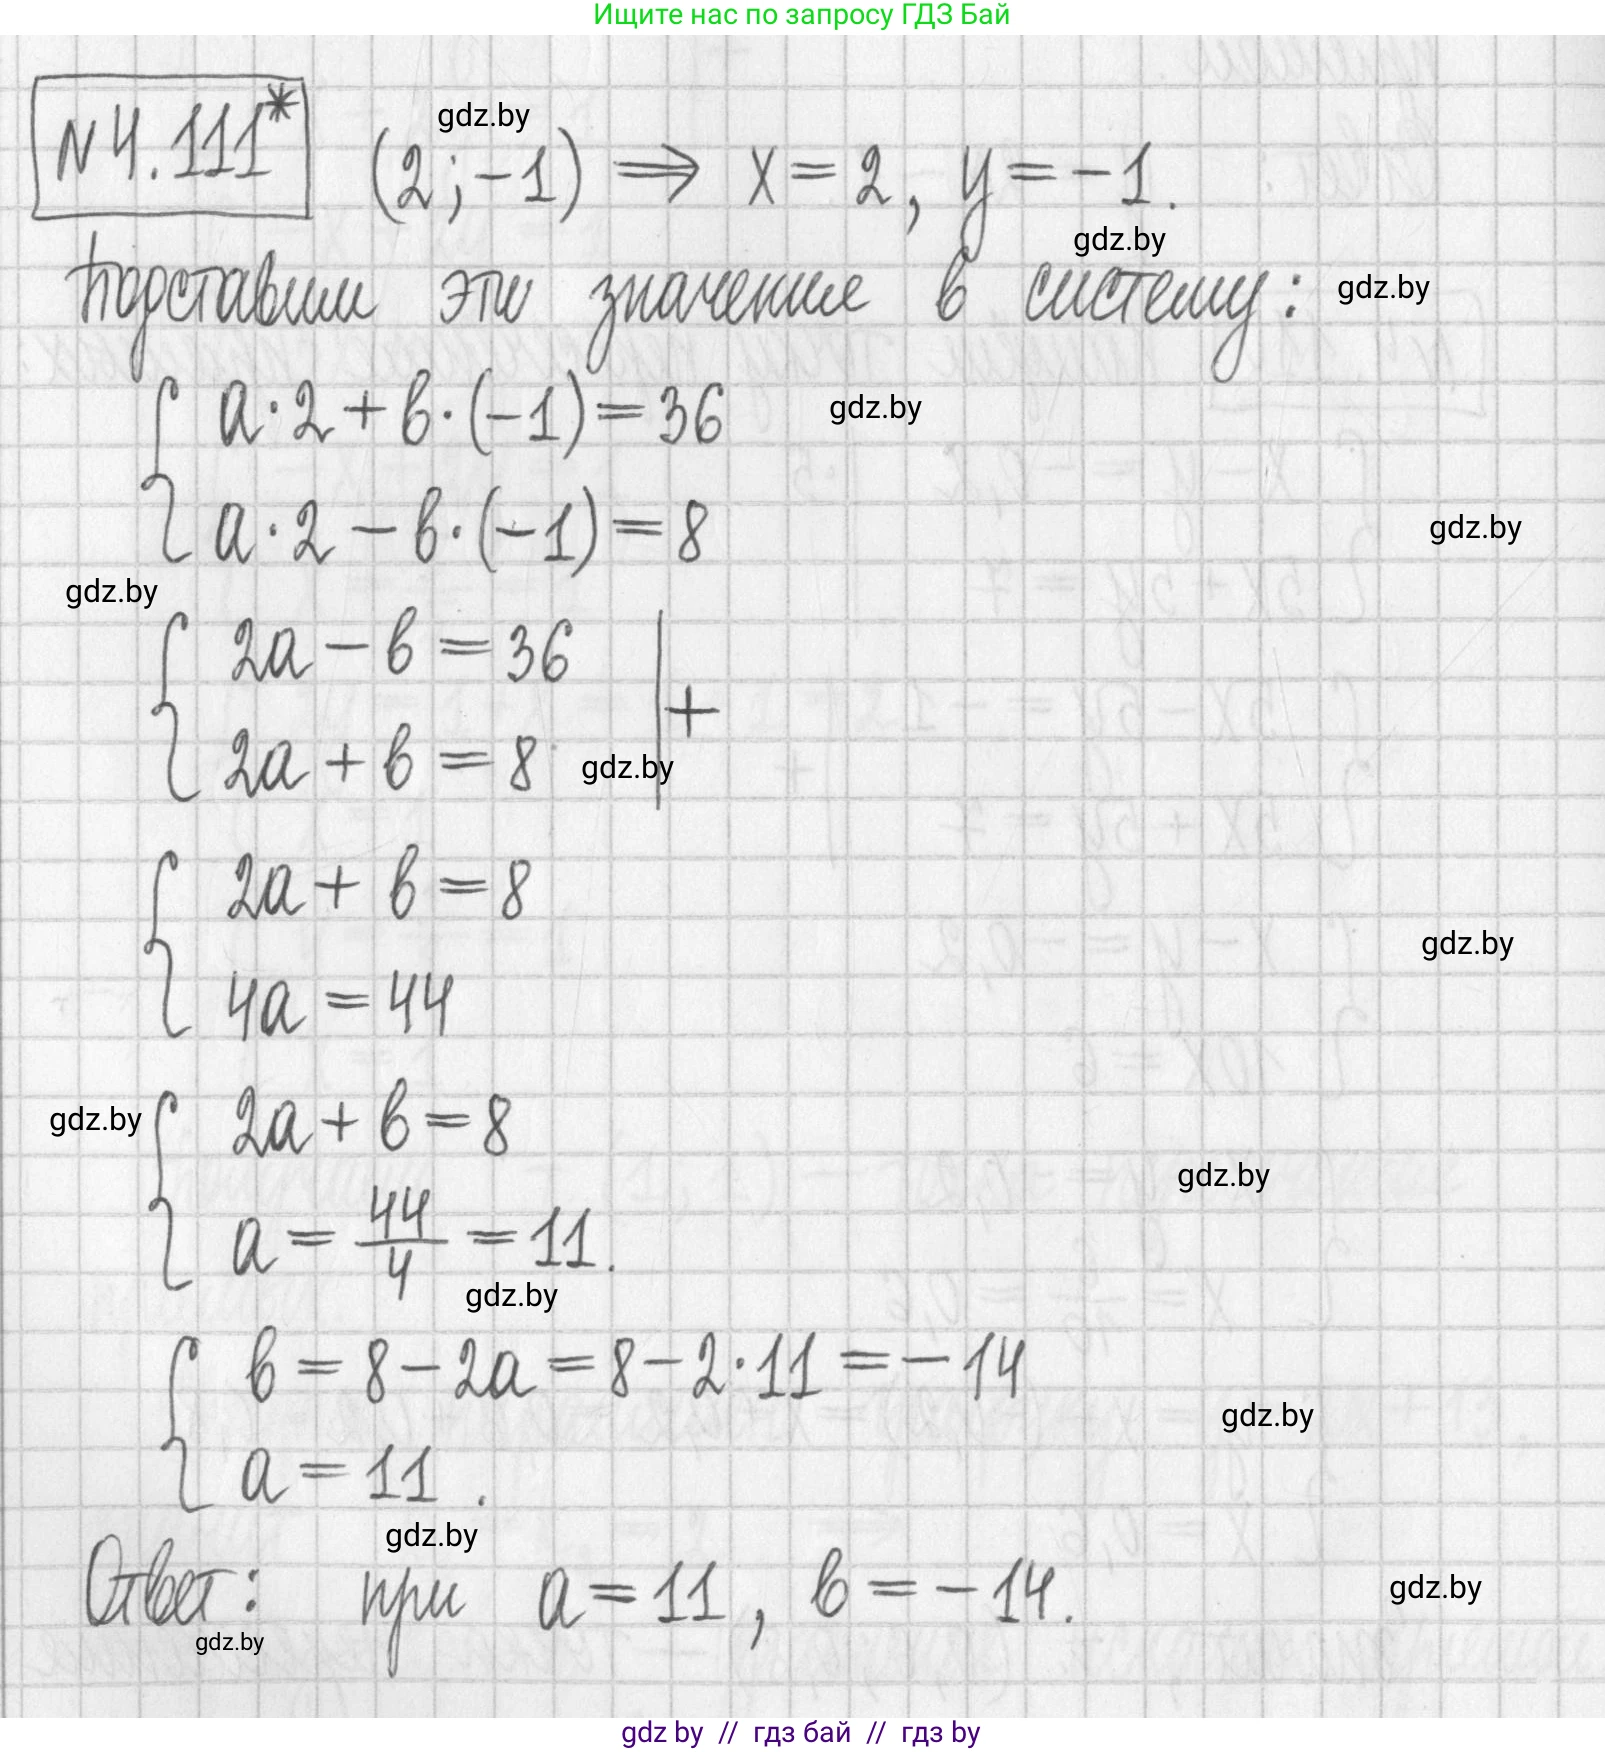 Ищите нас по запросу ГДЗ Бай
N 4.111*
gdz.by
(2 ; -1) ⇒ x = 2, y = -1.
gdz.by
Подставим эти значение в систему:
gdz.by
{ a·2 + b·(-1) = 36
gdz.by
a·2 - b·(-1) = 8
gdz.by
gdz.by
{ 2a - b = 36 | +
2a + b = 8
gdz.by
{ 2a + b = 8
gdz.by
4a = 44
gdz.by
{ 2a + b = 8
gdz.by
a = 44/4 = 11.
gdz.by
{ b = 8 - 2a = 8 - 2·11 = -14
gdz.by
a = 11.
gdz.by
Ответ: при a = 11, b = -14.
gdz.by
gdz.by
gdz by // гдз бай // гдз by